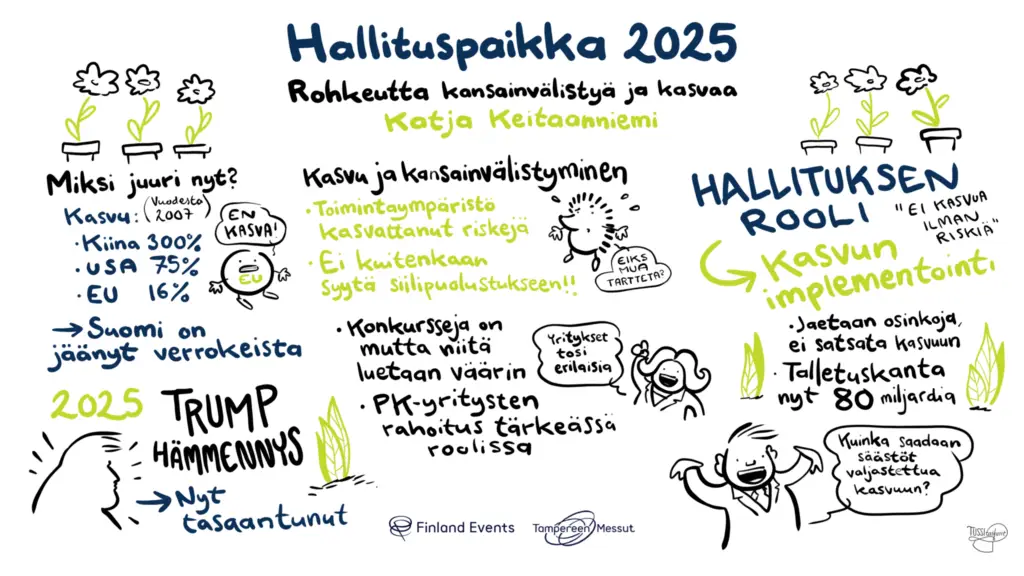 Hallituspaikka 2025
Rohkeutta kansainvälistyä ja kasvaa
Katja Keitaanniemi
Miksi juuri nyt?
Kasvu: (Vuodesta
2007)
• Kiina 300%
• USA 75%
• EU 16%
EN
KASVA!
EU
→ Suomi on
jäänyt verrokeista
2025 TRUMP
HÄMMENNYS
→ Nyt
tasaantunut
Kasvu ja kansainvälistyminen
• Toimintaympäristö
kasvattanut riskejä
• Ei kuitenkaan
syytä siilipuolustukseen!!
EIKS
MUA
TARTTETA?
• Konkursseja on
mutta niitä
luetaan väärin
• PK-yritysten
rahoitus tärkeässä
roolissa
Yritykset
tosi
erilaisia
HALLITUKSEN
ROOLI
"EI KASVUA
ILMAN
RISKIÄ"
Kasvun
implementointi
• Jaetaan osinkoja,
ei satsata kasvuun
• Talletuskanta
nyt 80 miljardia
Kuinka saadaan
säästöt
valjastettua
kasvuun?
Finland Events
Tampereen Messut